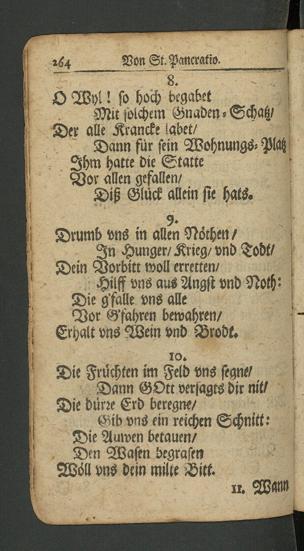 264 Von St. Pancratio.
8.
O Wyl! so hoch begabet
Mit solchem Gnaden-Schatz/
Der alle Krancke labet/
Dann für sein Wohnungs-Platz
Ihm hatte die Statte
Vor allen gefallen/
Diß Glück allein sie hats.
9.
Drumb vns in allen Nöthen/
In Hunger/ Krieg/ vnd Todt/
Dein Vorbitt woll erretten/
Hilff vns aus Angst vnd Noth:
Die g'falle vns alle
Vor G'fahren bewahren/
Erhalt vns Wein vnd Brodt.
10.
Die Früchten im Feld vns segne/
Dann GOtt versagts dir nit/
Die dürre Erd beregne/
Gib vns ein reichen Schnitt:
Die Auwen betauen/
Den Wasen begrasen
Wöll vns dein milte Bitt.
11. Wann